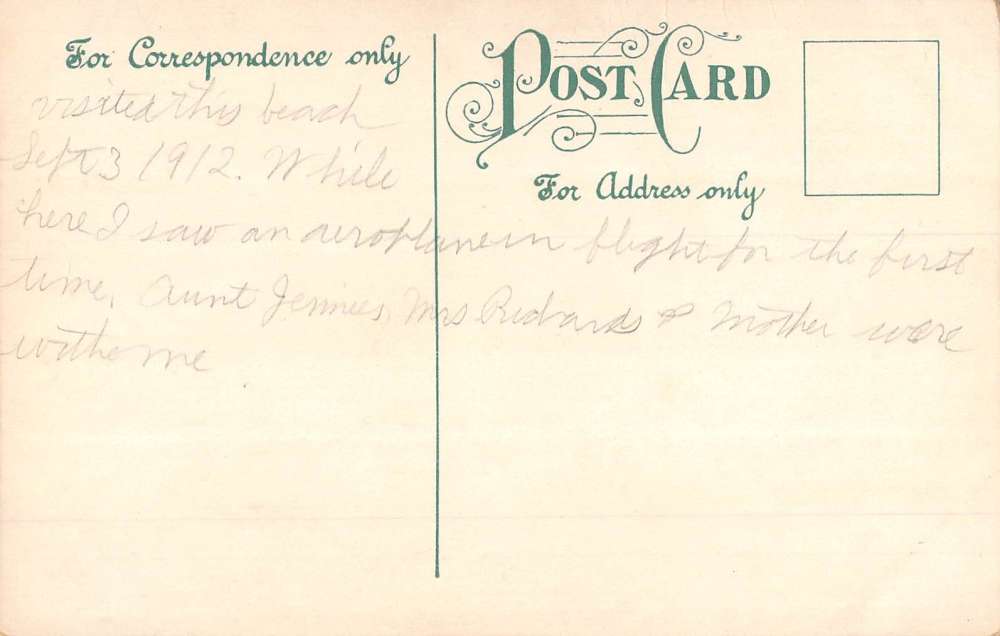 For Correspondence only
POST CARD
For Address only
visited this beach
Sept 3 1912. While
here I saw an aeroplane in flight for the first
time. Aunt Jennie, Mrs Richards & Mother were
with me